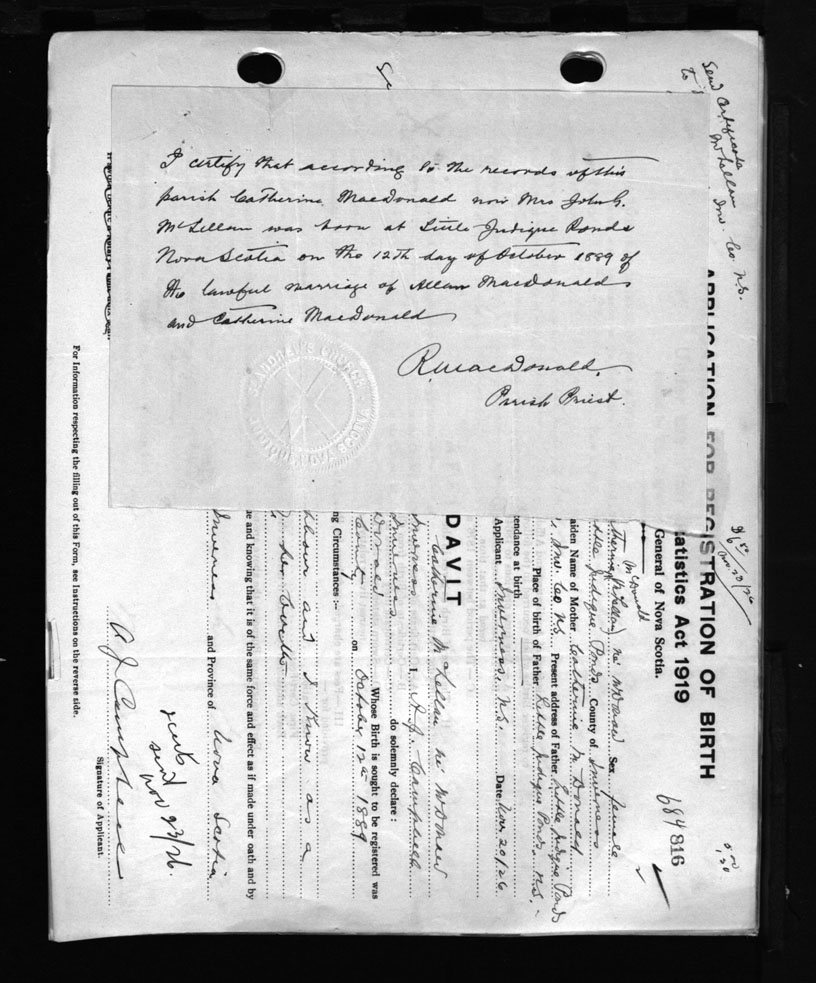 I certify that according to the records of this
parish Catherine MacDonald now Mrs John G.
McLellan was born at Little Judique Ponds
Nova Scotia on the 12th day of October 1889 of
the lawful marriage of Allan MacDonald
and Catherine MacDonald
R. MacDonald.
Parish Priest.
ST ANDREW'S CHURCH
JUDIQUE, NOVA SCOTIA
Send Certificate
to
McLellan
Inv. Co. N.S.
APPLICATION FOR REGISTRATION OF BIRTH
atistics Act 1919
General of Nova Scotia.
684816
McDonald
Sex female
ttle Judique Ponds County of Inverness
aiden Name of Mother Catherine McDonald
Inv. Co N.S. Present address of Father Little Judique Ponds
Place of birth of Father Little Judique Ponds, N.S.
tendance at birth
Applicant Inverness, N.S. Date Nov 20/26
DAVIT
Catherine McLellan
Inverness I, A. J. Campbell
Inverness do solemnly declare :
Donald Whose Birth is sought to be registered was
County on October 12th 1889
ng Circumstances :-
and I know as a
her birth
e and knowing that it is of the same force and effect as if made under oath and by
Inverness and Province of Nova Scotia
sent
Nov 23/26
A. J. Campbell
Signature of Applicant.
For Information respecting the filling out of this Form, see Instructions on the reverse side.